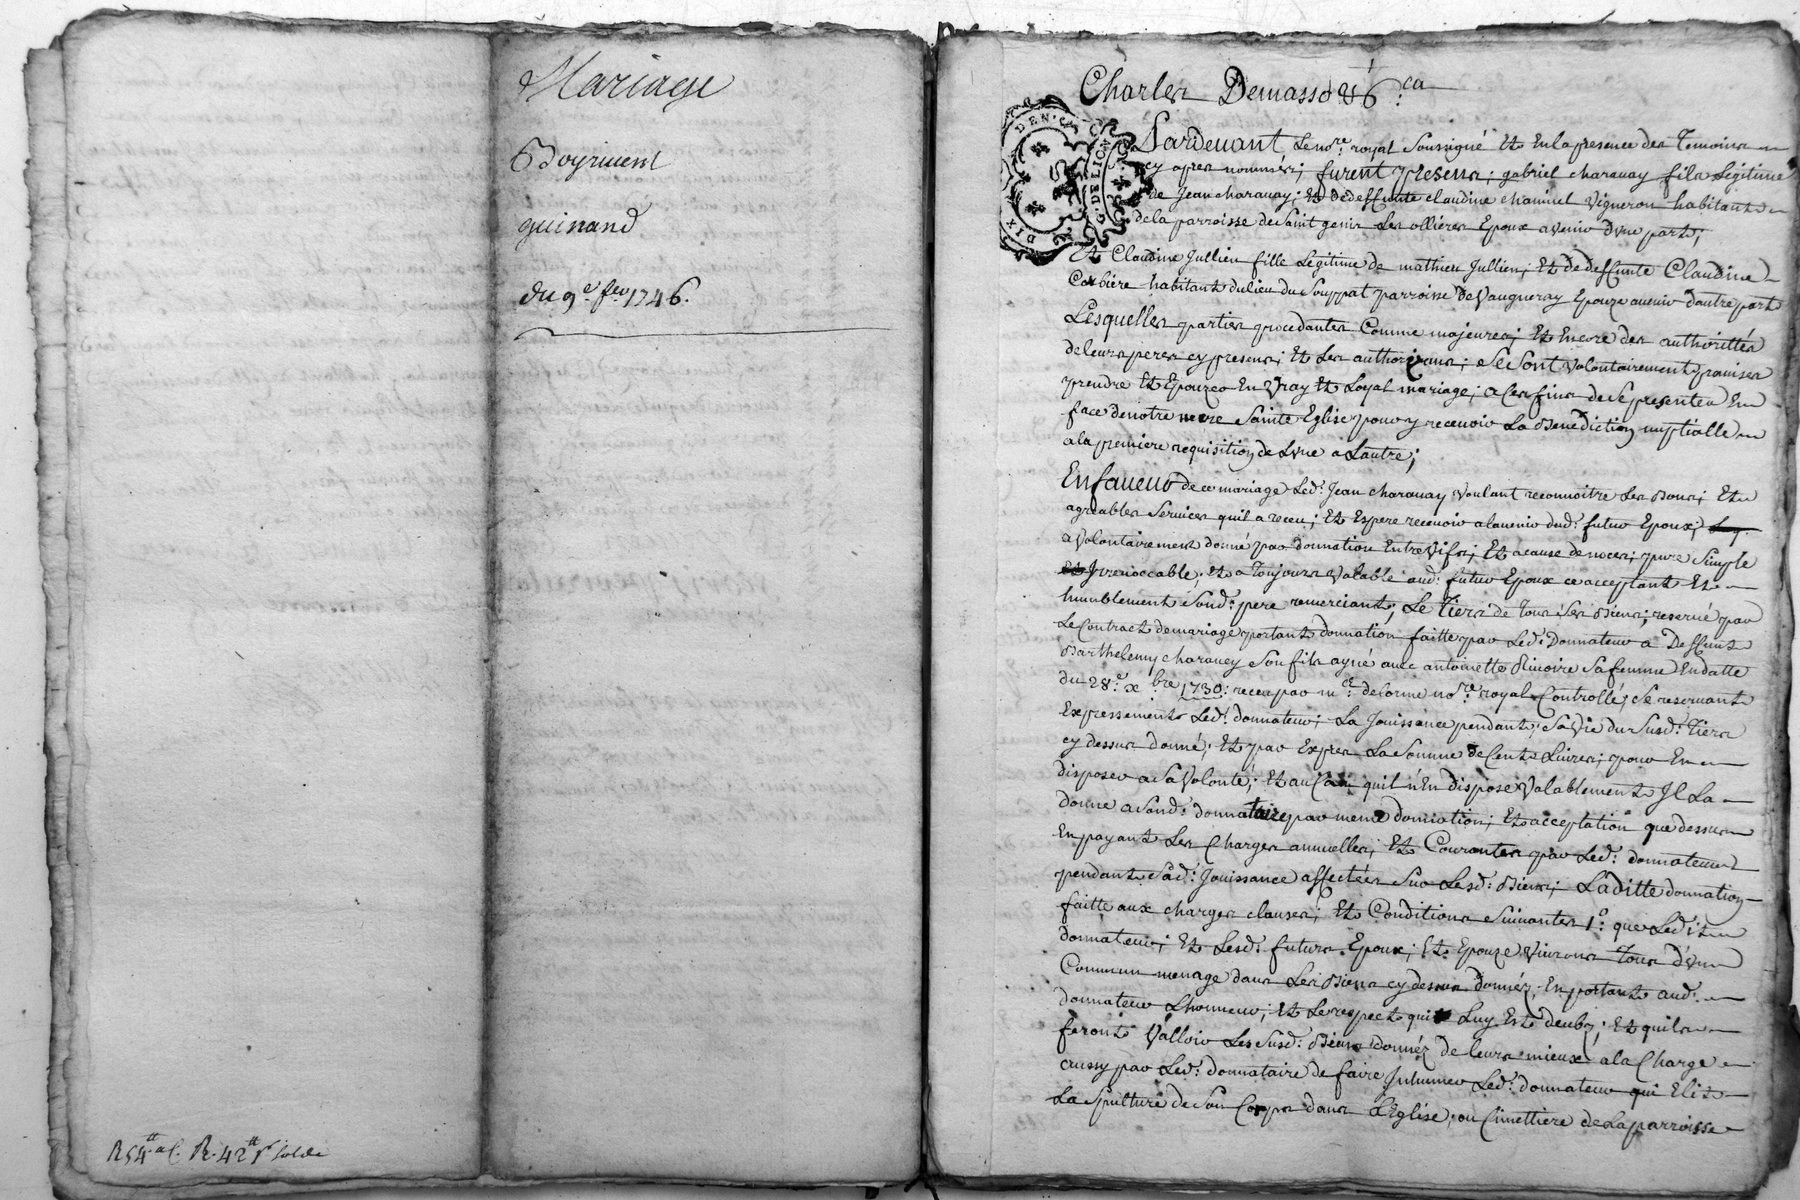 Mariage
Boyriuent
guinand
du 9.e fev 1746.
R 54.tt a C. R. 42 tt solde
Charles Demasso & 6.ca
DIX DEN.
G. DE LION
Pardeuant Le no.re royal Soussigné Et En la presence des Temoins
cy apres nommés; furent presens; gabriel charauay fils Legitime
de Jean charauay; Et de deffunte claudine chamuel Vigneron habitant
de la parroisse de Saint genis Les ollières Epoux avenir d'vne part;
Et Claudine Jullien fille Legitime de mathieu Jullien; Et de deffunte Claudine
Corbière habitant du lieu du Souppat parroisse de Vaugneray Epouze auenir d'autre part
Lesquelles parties procedantes Comme majeures; Et Encore des authorittés
de leurs peres cy presens; Et Les authorizans; Se Sont volontairement promises
prendre Et Epouzer En Vray Et Loyal mariage; a Ces fins de Se presenter En
face de notre mere Sainte Eglise pour y receuoir La Benediction nuptialle
a la premiere requisition de L'vne a Lautre;
En faueur de ce mariage Led.t Jean charauay voulant reconnoitre Les Bons; Et
agreables Services quil a receu; Et Espere receuoir alauenir dud.t futur Epoux;
a volontairement donné par donnation Entre Vifs; Et a cause de noces; pure Simple
Et Irreuoccable; Et a Toujours Valable aud.t futur Epoux ce acceptant Et
humblement Sond.t pere remerciant; Le Tiers de Tous Ses Biens; reserué par
Le Contract de mariage portant donnation faitte par Led.t Donnateur a Deffunt
Barthelemy charauey Son fils ayné auec antoinette Riuoire Sa femme En datte
du 28.e x.bre 1730: receu par m.e delorme no.re royal Controllé; Se reseruant
Expressement Led.t donnateur; La Jouissance pendant; Sa Vie du Susd.t Tiers
cy dessus donné; Et par Expres La Somme de Cent Liures; pour En
disposer a Sa Volonté; Et au Cas quil n'En dispose Valablement Il La
donne a Sond.t donnataire par meme donnation; Et acceptation que dessus
En payant Les Charges annuelles; Et Courantes par Led.t donnateur
pendant Sad.t Jouissance affectées Sur Lesd.t Biens; Laditte donnation
faitte aux charges clauses; Et Conditions Suiuantes 1.o que Ledit
donnateur; Et Lesd.t futurs Epoux; Et Epouze Viuront Tous d'vn
Commun menage dans Les Biens cy dessus donnéz; En portant aud.t
donnateur Lhonneur; Et Le respect qui Luy Est deub; Et quils
feront Valloir Les Susd.t Biens donnéz de leurs mieux a la Charge
aussy par Led.t donnataire de faire Inhumer Led.t donnateur qui Elit
La Spulture de Son Corps dans L'Eglise; ou Cimettiere de La parroisse